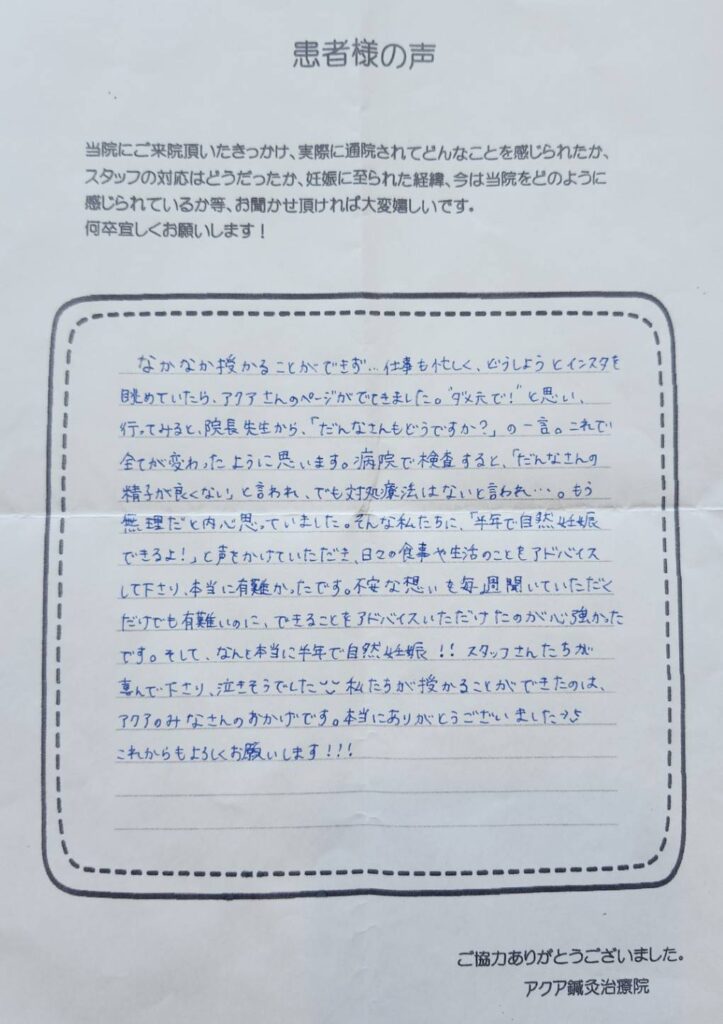 患者様の声
当院にご来院頂いたきっかけ、実際に通院されてどんなことを感じられたか、
スタッフの対応はどうだったか、妊娠に至られた経緯、今は当院をどのように
感じられているか等、お聞かせ頂ければ大変嬉しいです。
何卒宜しくお願いします！
なかなか授かることができず…仕事も忙しく、どうしようとインスタを
眺めていたら、アクアさんのページがでてきました。"ダメ元で！"と思い、
行ってみると、院長先生から、「だんなさんもどうですか？」の一言。これで
全てが変わったように思います。病院で検査すると、「だんなさんの
精子が良くない」と言われ、でも対処療法はないと言われ…。もう
無理だと内心思っていました。そんな私たちに、「半年で自然妊娠
できるよ！」と声をかけていただき、日々の食事や生活のことをアドバイス
して下さり、本当に有難かったです。不安な想いを毎週聞いていただく
だけでも有難いのに、できることをアドバイスいただけたのが心強かった
です。そして、なんと本当に半年で自然妊娠！！スタッフさんたちが
喜んで下さり、泣きそうでした 私たちが授かることができたのは、
アクアのみなさんのおかげです。本当にありがとうございました
これからもよろしくお願いします！！！
ご協力ありがとうございました。
アクア鍼灸治療院